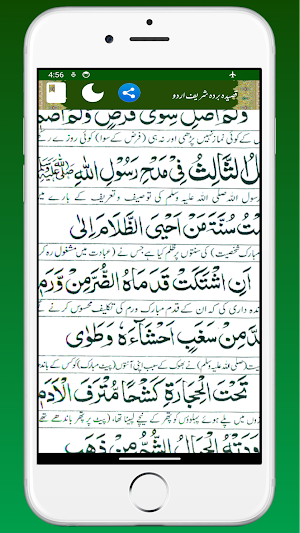 4:56
قصیدہ بردہ شریف اردو
ولم اصل سوى فرض ولم اصم
کے کوئی نماز نہیں پڑھی اور نہ ہی (فرض کے سوا) کوئی روزے ر
الثَّالِثُ فِیْ مَدْحِ رَسُوْلِ اللهِ ﷺ
رسول اللہ صلی اللہ علیہ وسلم کی توصیف و تعریف کے بارے میں
سُنَّةَ مَنْ اَحْیَی الظَّلَامَ اِلٰی
مبارک شخصیت) کی سنتوں پر ظلم کیا ہے جس نے (عبادت میں مشغول رہ کر
اَنِ اشْتَكَتْ قَدَمَاهُ الضُّرَّ مِنْ وَّرَمٍ
داری کی کہ ان کے قدم مبارک ورم کی تکلیف محسوس کرنے
مِنْ سَغَبٍ اَحْشَآءَهٗ وَطَوٰی
(صلی اللہ علیہ وسلم) نے بھوک کے سبب اپنی آنتوں (پیٹ مبارک) کو کس کے باندھ
تَحْتَ الْحِجَارَةِ كَشْحًا مُّتْرَفَ الْاَدَمِ
میں پلے ہوئے پہلوؤں کو پتھر کے نیچے لپیٹا تھا، (پیٹ پر پتھر باندھے تھے
وَدَتْهُ الْجِبَالُ الشُّمُّ مِنْ ذَهَبٍ